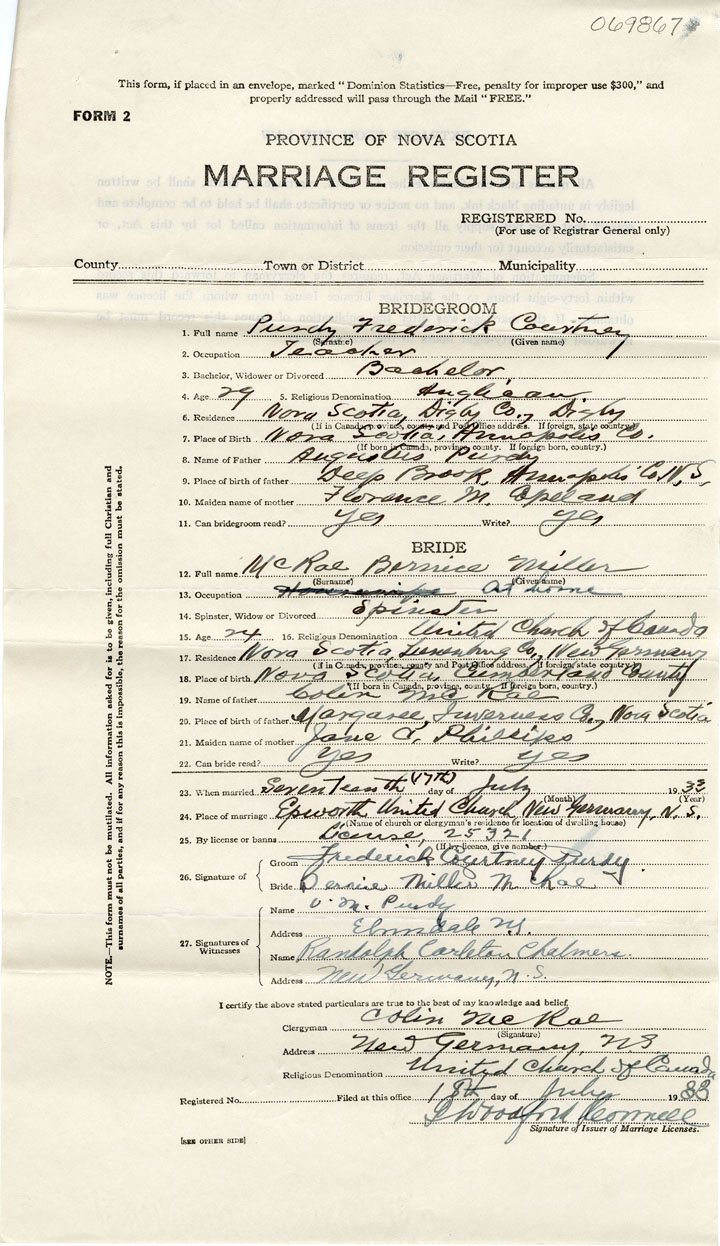 069867
This form, if placed in an envelope, marked "Dominion Statistics—Free, penalty for improper use $300," and
properly addressed will pass through the Mail "FREE."
FORM 2
PROVINCE OF NOVA SCOTIA
MARRIAGE REGISTER
REGISTERED No.
(For use of Registrar General only)
County Town or District Municipality
BRIDEGROOM
1. Full name Purdy Frederick Courtney
(Surname) (Given name)
2. Occupation Teacher
3. Bachelor, Widower or Divorced Bachelor
4. Age 29 5. Religious Denomination Anglican
6. Residence Nova Scotia, Digby Co., Digby
(If in Canada, province, county and Post Office address. If foreign, state country)
7. Place of Birth Nova Scotia, Annapolis Co.
(If born in Canada, province, county. If foreign born, country.)
8. Name of Father Augustus Purdy
9. Place of birth of father Deep Brook, Annapolis Co. N.S.
10. Maiden name of mother Florence M. Copeland
11. Can bridegroom read? Yes Write? Yes
BRIDE
12. Full name McRae Bernice Miller
(Surname) (Given name)
13. Occupation At home
14. Spinster, Widow or Divorced Spinster
15. Age 24 16. Religious Denomination United Church of Canada
17. Residence Nova Scotia, Lunenburg Co., New Germany
(If in Canada, province, county and Post Office address. If foreign state country.)
18. Place of birth Nova Scotia, Cumberland County
(If born in Canada, province, county. If foreign born, country.)
19. Name of father Colin McRae
20. Place of birth of father Margaree, Inverness Co., Nova Scotia
21. Maiden name of mother Jane C. Phillips
22. Can bride read? Yes Write? Yes
23. When married Seventeenth (17th) day of July 1933
(Month) (Year)
24. Place of marriage Epworth United Church, New Germany, N.S.
(Name of church or clergyman's residence or location of dwelling house)
25. By license or banns License, 25321
(If by licence, give number.)
26. Signature of
Groom Frederick Courtney Purdy
Bride Bernice Miller McRae
27. Signatures of Witnesses
Name V. M. Purdy
Address Elmsdale N.S.
Name Randolph Carleton Chalmers.
Address New Germany, N.S.
I certify the above stated particulars are true to the best of my knowledge and belief.
Clergyman Colin McRae
(Signature)
Address New Germany, NS
Religious Denomination United Church of Canada
Registered No. Filed at this office 18th day of July 1933
Signature of Issuer of Marriage Licenses.
[SEE OTHER SIDE]
NOTE.—This form must not be mutilated. All information asked for is to be given, including full Christian and
surnames of all parties, and if for any reason this is impossible, the reason for the omission must be stated.